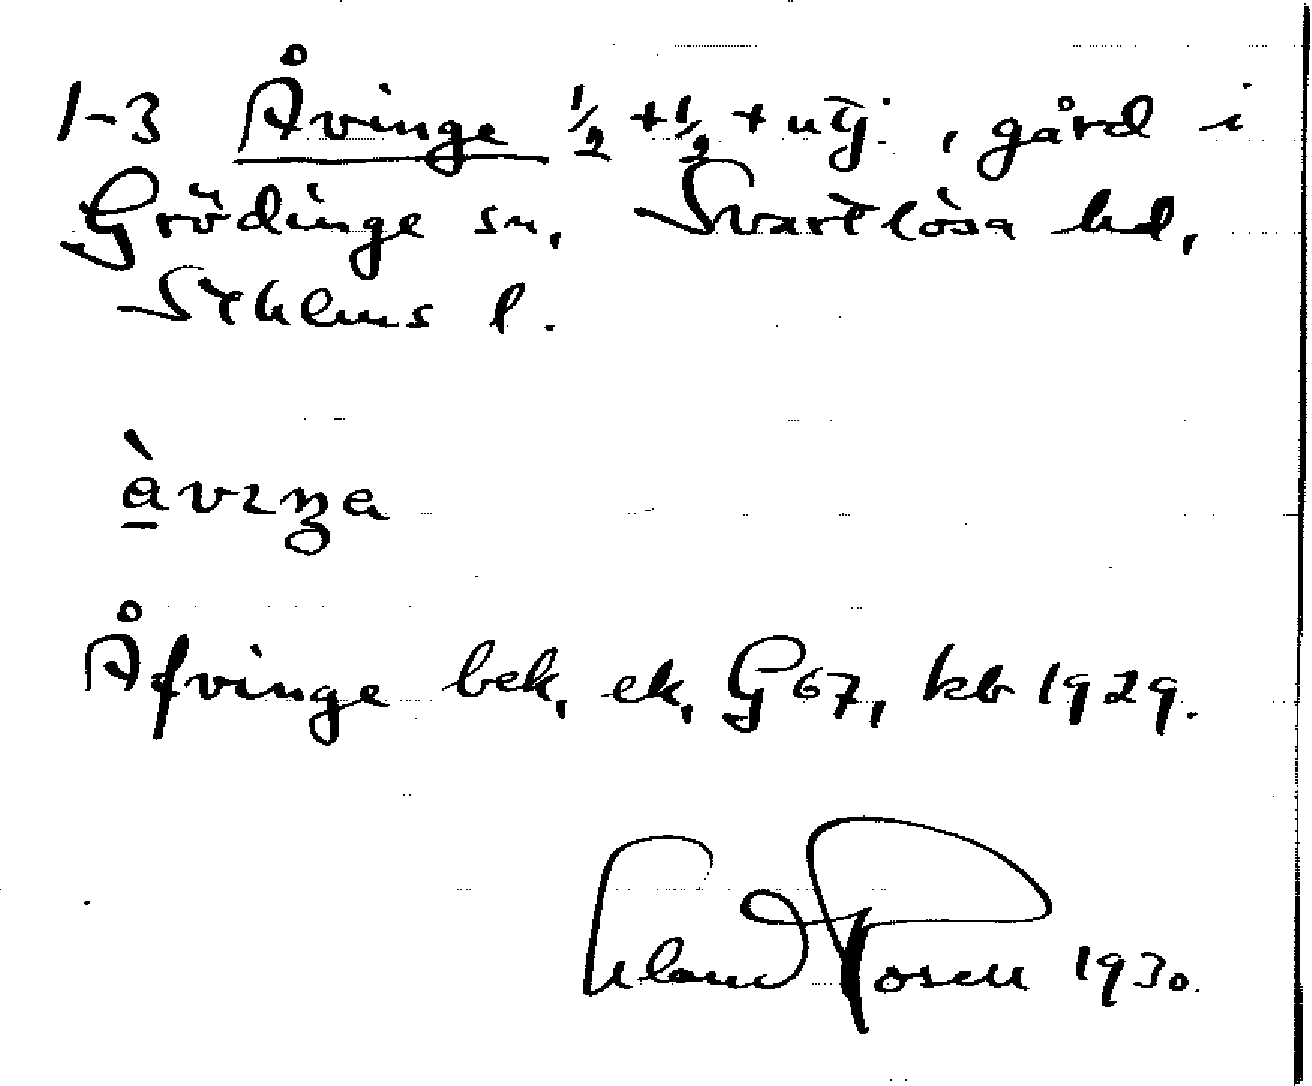 1-3 Åvinge 1/2 + 1/2 + utj., gård i
Grödinge sn, Svartlösa hd,
Sthlms l.
àvıŋa
Åfvinge bek, ek, G67, kb 1929.
Erland Rosell 1930.